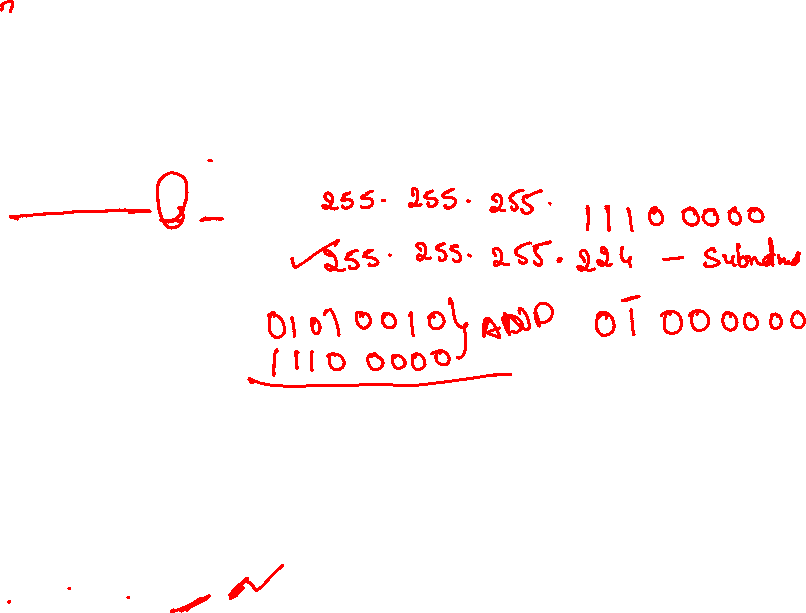 255. 255. 255. 1110 0000
255. 255. 255. 224 —
01010010 } AND 01 000000
1110 0000